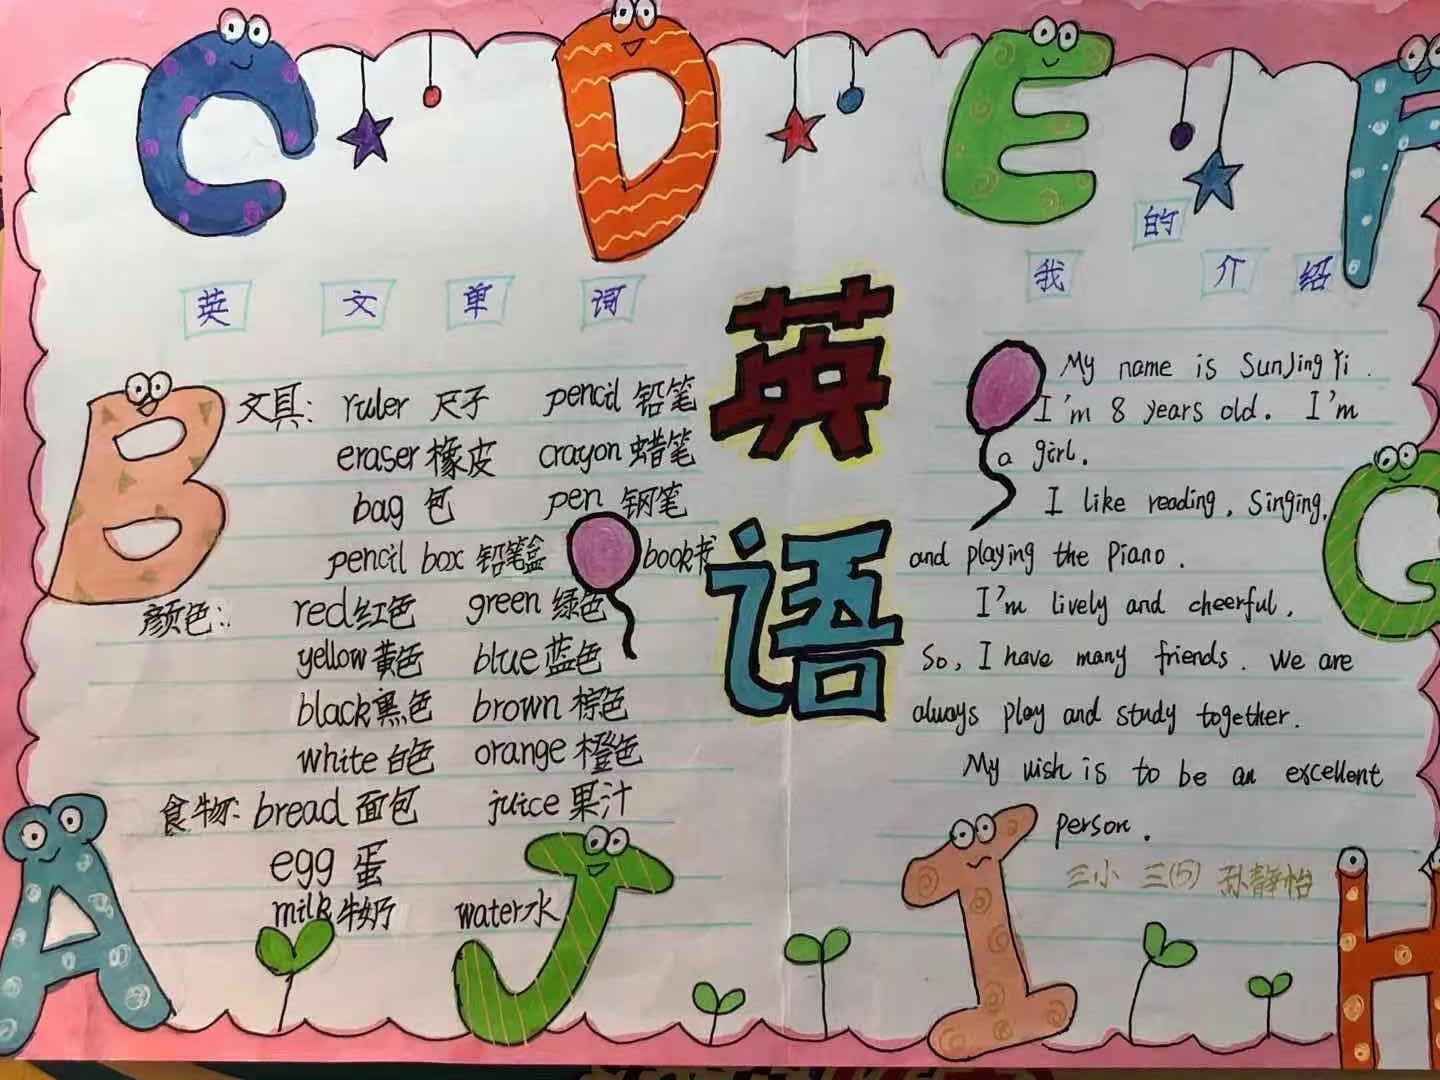 C D E F
英文单词
文具: ruler 尺子 pencil 铅笔
eraser 橡皮 crayon 蜡笔
bag 包 pen 钢笔
pencil box 铅笔盒 book书
颜色: red红色 green 绿色
yellow 黄色 blue 蓝色
black黑色 brown 棕色
white 白色 orange 橙色
食物: bread 面包 juice 果汁
egg 蛋
milk 牛奶 water水
英语
我的介绍
My name is SunJing Yi.
I'm 8 years old. I'm
a girl.
I like reading, Singing,
and playing the Piano.
I'm lively and cheerful.
So, I have many friends. We are
always play and study together.
My wish is to be an excellent
person.
三小 三(5) 孙静怡
B
A
J
I
H
G